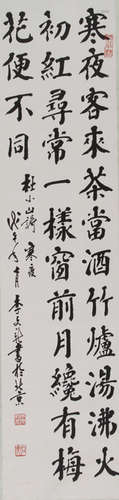 寒夜客來茶當酒竹爐湯沸火
初紅尋常一樣窗前月纔有梅
花便不同
杜小山詩 寒夜
李文 書於北京